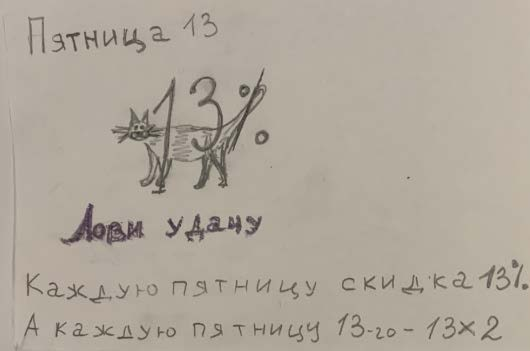 Пятница 13
13%
Лови удачу
Каждую пятницу скидка 13%.
А каждую пятницу 13-го - 13×2